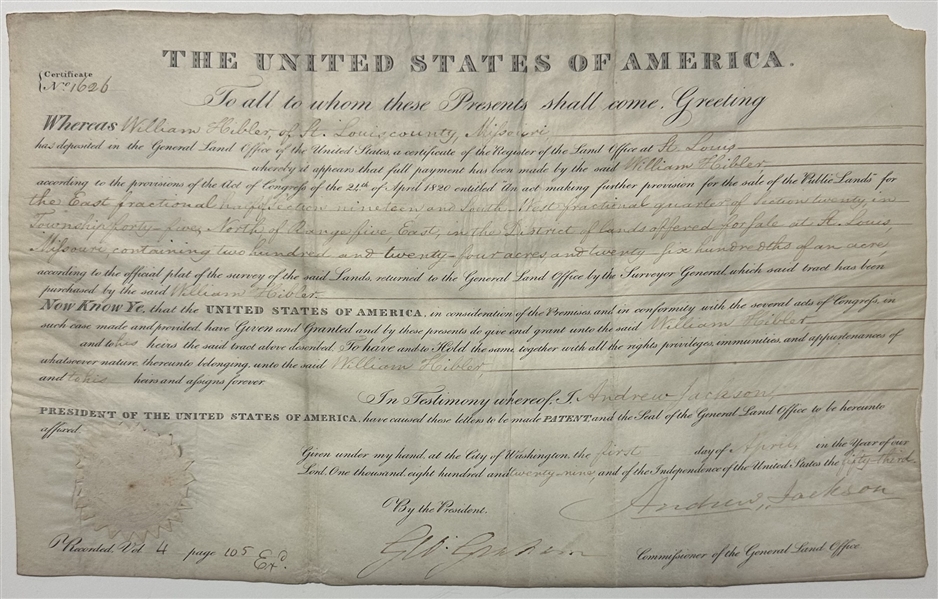 THE UNITED STATES OF AMERICA.
Certificate
No. 1626
To all to whom these Presents shall come, Greeting
Whereas William Hibler, of St. Louis county, Missouri
has deposited in the General Land Office of the United States, a certificate of the Register of the Land Office at St. Louis
whereby it appears that full payment has been made by the said William Hibler
according to the provisions of the Act of Congress of the 24th of April 1820 entitled "An act making further provision for the sale of the Public Lands" for
the East fractional half of section nineteen and South West fractional quarter of section twenty, in
Township forty-five, North, of Range five East, in the District of lands offered for sale at St. Louis,
Missouri containing two hundred and twenty-four acres, and twenty-six hundredths of an acre
according to the official plat of the survey of the said Lands, returned to the General Land Office by the Surveyor General, which said tract has been
purchased by the said William Hibler
Now Know Ye, that the UNITED STATES OF AMERICA, in consideration of the Premises and in conformity with the several acts of Congress, in
such case made and provided, have Given and Granted and by these presents do give and grant unto the said William Hibler
and to his heirs the said tract above described. To have and to Hold the same, together with all the rights privileges, immunities, and appurtenances of
whatsoever nature, thereunto belonging, unto the said William Hibler
and to his heirs and assigns forever
In Testimony whereof, I, Andrew Jackson
PRESIDENT OF THE UNITED STATES OF AMERICA, have caused those letters to be made PATENT, and the Seal of the General Land Office to be hereunto
affixed.
Given under my hand, at the City of Washington, the first day of April in the Year of our
Lord, One thousand eight hundred and twenty-nine, and of the Independence of the United States the fifty-third
Andrew Jackson
By the President.
G.W. Graham Commissioner of the General Land Office
Recorded, Vol 4 page 105 Exd.